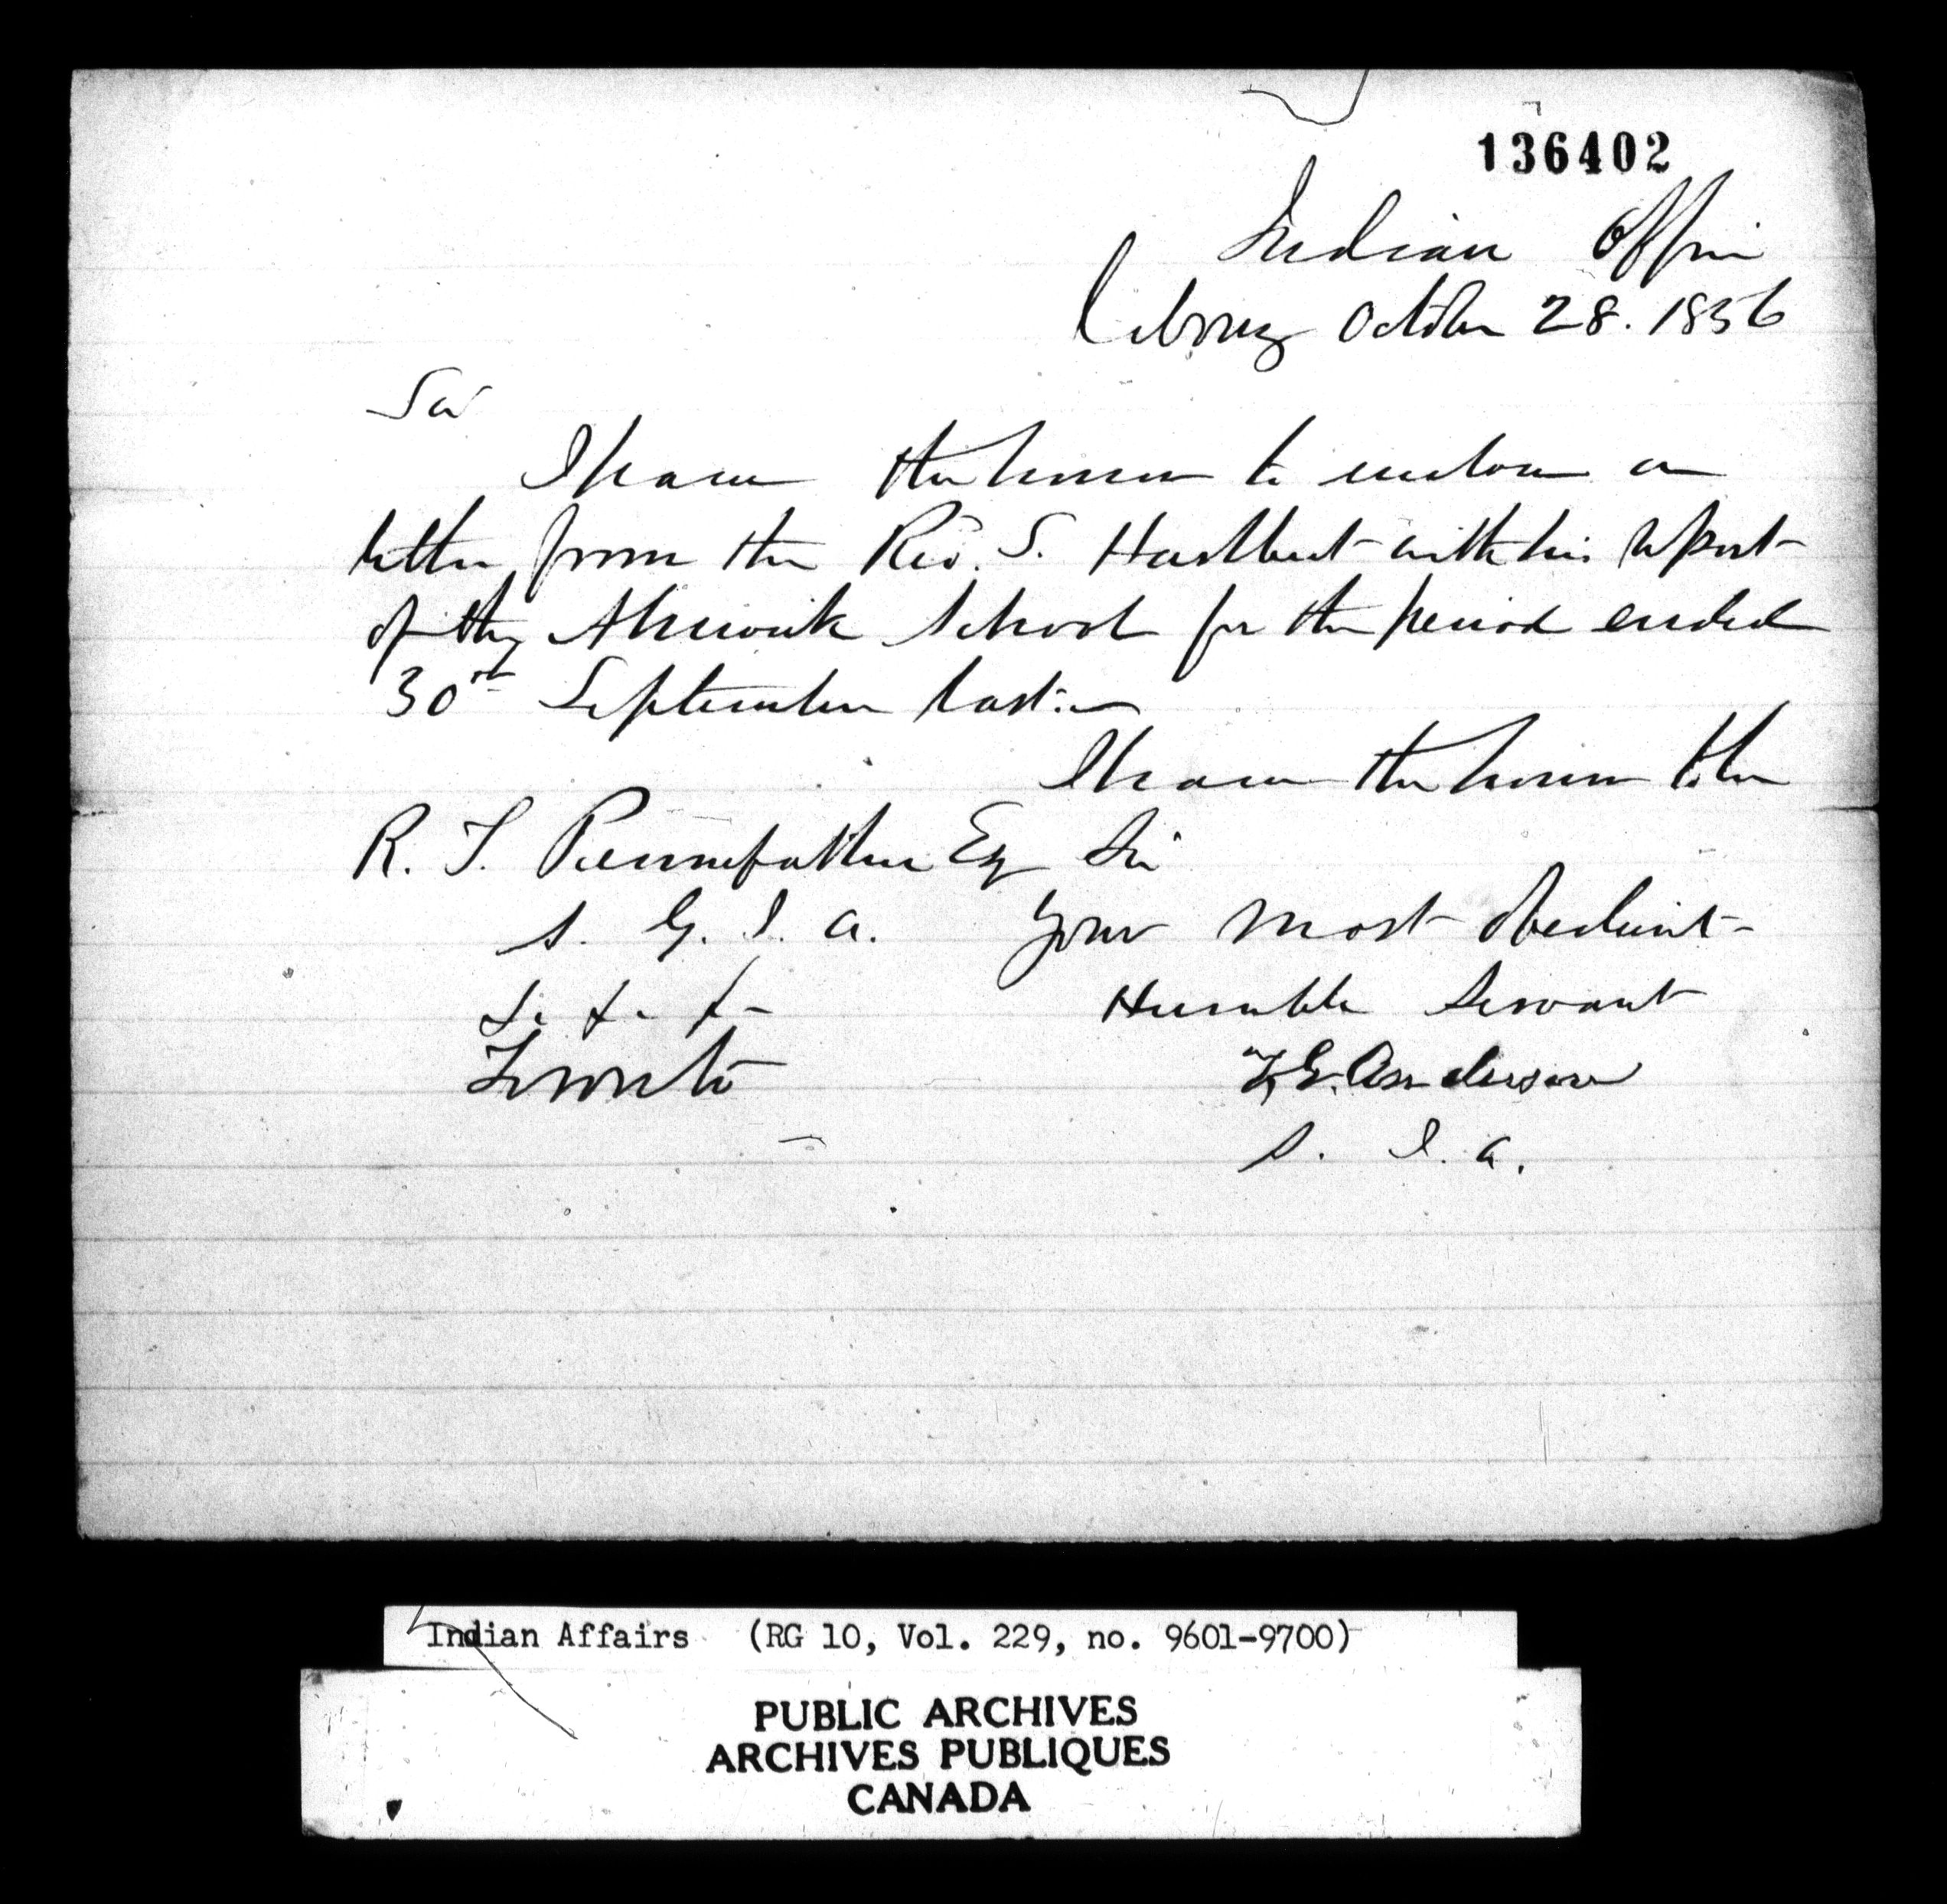 136402
Indian Office
Cobourg October 28. 1856
Sir
I have the honor to enclose a
letter from the Rev. S. Hurlburt with his report
of the Alnwick School for the period ended
30th September last.
I have the honor to be
R. T. Pennefather Esq Sir
S. G. I. A. Your most obedient
&. &. &. Humble Servant
Toronto T. G. Anderson
S. I. A.
Indian Affairs (RG 10, Vol. 229, no. 9601-9700)
PUBLIC ARCHIVES
ARCHIVES PUBLIQUES
CANADA